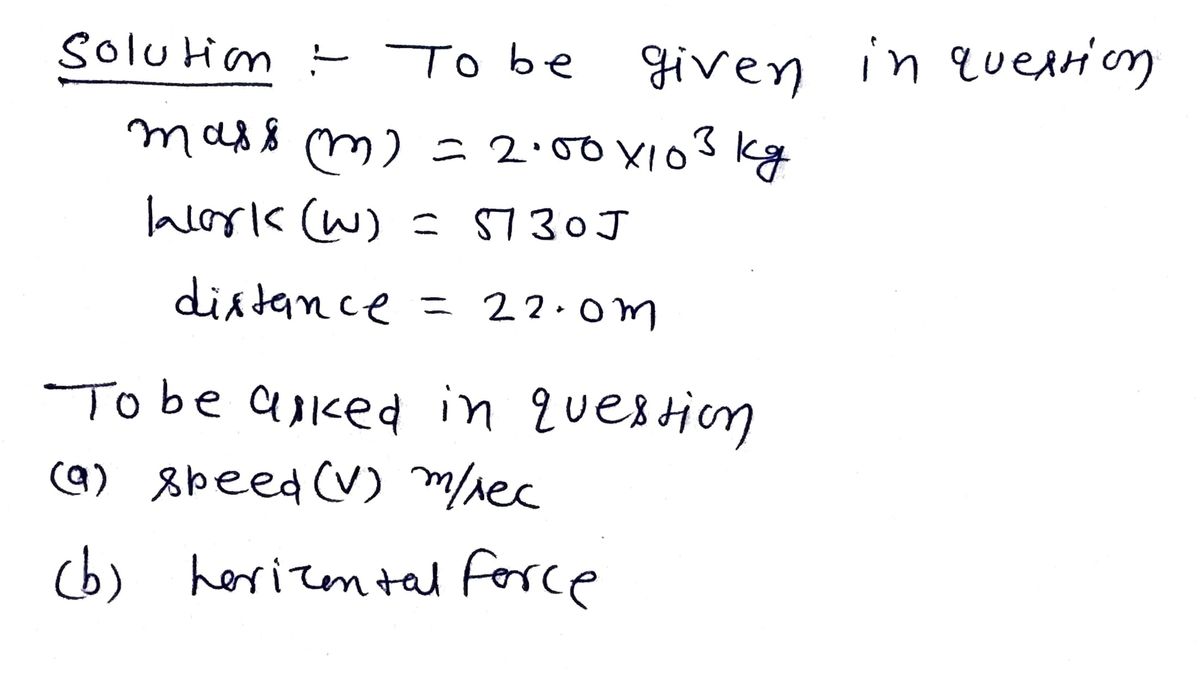 Solution :- To be given in question
mass (m) = 2.00 X10³ kg
Work (W) = 5130J
distance = 22.0m
To be asked in question
(a) speed (V) m/sec
(b) horizontal force